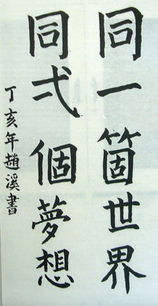 同一箇世界
同弌個夢想
丁亥年趙溪書